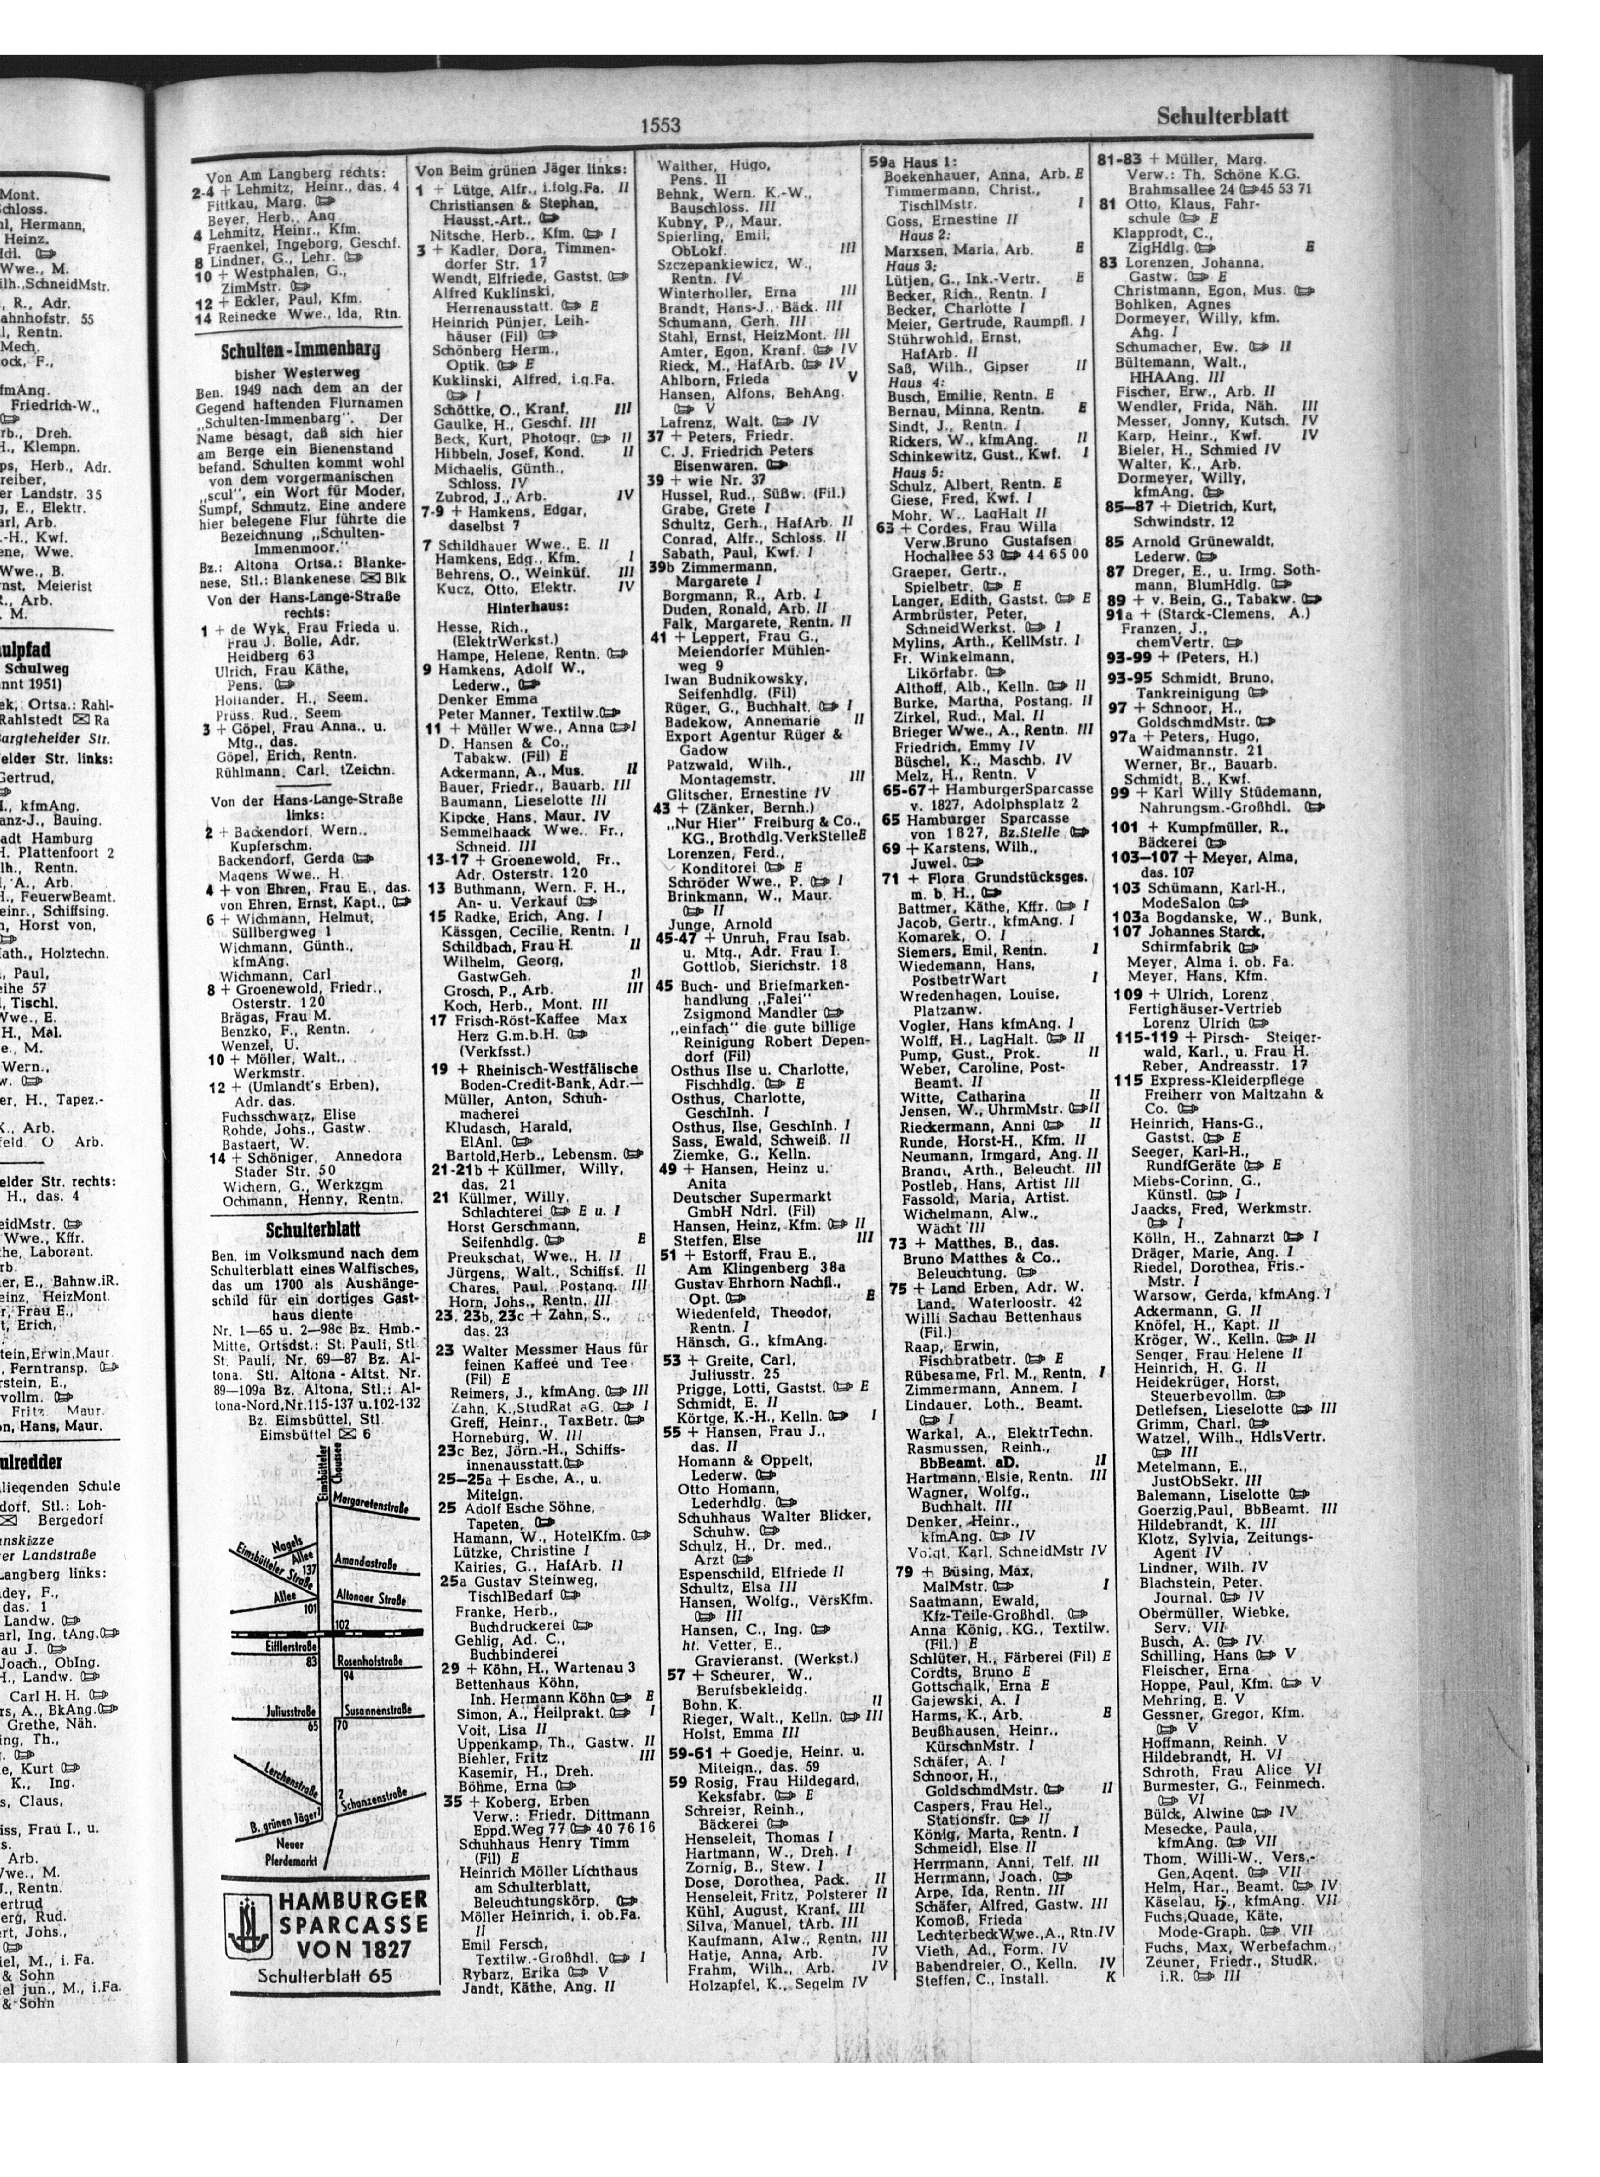 1553
Schulterblatt
Von Am Langberg rechts:
2-4 + Lehmitz, Heinr., das. 4
Fittkau, Marg.
Beyer, Herb., Ang
4 Lehmitz, Heinr., Kfm.
Fraenkel, Ingeborg, Geschf.
8 Lindner, G., Lehr.
10 + Westphalen, G.,
ZimMstr.
12 + Eckler, Paul, Kfm.
14 Reinecke Wwe., Ida, Rtn.
Schulten-Immenbarg
bisher Westerweg
Ben. 1949 nach dem an der
Gegend haftenden Flurnamen
„Schulten-Immenbarg". Der
Name besagt, daß sich hier
am Berge ein Bienenstand
befand. Schulten kommt wohl
von dem vorgermanischen
„scul", ein Wort für Moder,
Sumpf, Schmutz. Eine andere
hier belegene Flur führte die
Bezeichnung „Schulten-
Immenmoor."
Bz.: Altona Ortsa.: Blanke-
nese, Stl.: Blankenese Blk
Von der Hans-Lange-Straße
rechts:
1 + de Wyk, Frau Frieda u.
Frau J. Bolle, Adr.
Heidberg 63
Ulrich, Frau Käthe,
Pens.
Hollander, H., Seem.
Prüss, Rud., Seem
3 + Göpel, Frau Anna., u.
Mtg., das.
Göpel, Erich, Rentn.
Rühlmann, Carl, tZeichn.
Von der Hans-Lange-Straße
links:
2 + Backendorf, Wern.,
Kupferschm.
Backendorf, Gerda
Magens Wwe., H.
4 + von Ehren, Frau E., das.
von Ehren, Ernst, Kapt.,
6 + Wichmann, Helmut,
Süllbergweg 1
Wichmann, Günth.,
kfmAng.
Wichmann, Carl
8 + Groenewold, Friedr.,
Osterstr. 120
Brägas, Frau M.
Benzko, F., Rentn.
Wenzel, U.
10 + Möller, Walt.,
Werkmstr.
12 + (Umlandt's Erben),
Adr. das.
Fuchsschwarz, Elise
Rohde, Johs., Gastw.
Bastaert, W.
14 + Schöniger, Annedora
Stader Str. 50
Wichern, G., Werkzgm
Ochmann, Henny, Rentn.
Schulterblatt
Ben. im Volksmund nach dem
Schulterblatt eines Walfisches,
das um 1700 als Aushänge-
schild für ein dortiges Gast-
haus diente
Nr. 1—65 u. 2—98c Bz. Hmb.-
Mitte, Ortsdst.: St. Pauli, Stl.
St. Pauli, Nr. 69—87 Bz. Al-
tona. Stl. Altona - Altst. Nr.
89—109a Bz. Altona, Stl.: Al-
tona-Nord, Nr.115-137 u.102-132
Bz. Eimsbüttel, Stl.
Eimsbüttel 6
Eimsbütteler Chaussee
Margaretenstraße
Nagels Allee
137
Eimsbütteler Straße
Amandastraße
Allee
101
Altonaer Straße
102
Eifflerstraße
83
Rosenhofstraße
94
Juliusstraße
65
Susannenstraße
70
Lerchenstraße
2
Schanzenstraße
B. grünen Jäger 1
Neuer
Pferdemarkt
HAMBURGER
SPARCASSE
VON 1827
Schulterblatt 65
Von Beim grünen Jäger links:
1 + Lütge, Alfr., i.folg.Fa. II
Christiansen & Stephan,
Hausst.-Art.,
Nitsche, Herb., Kfm. I
3 + Kadler, Dora, Timmen-
dorfer Str. 17
Wendt, Elfriede, Gastst.
Alfred Kuklinski,
Herrenausstatt. E
Heinrich Pünjer, Leih-
häuser (Fil)
Schönberg Herm.,
Optik. E
Kuklinski, Alfred, i.g.Fa.
I
Schöttke, O., Kranf. III
Gaulke, H., Geschf. III
Beck, Kurt, Photogr. II
Hibbeln, Josef, Kond. II
Michaelis, Günth.,
Schloss. IV
Zubrod, J., Arb. IV
7-9 + Hamkens, Edgar,
daselbst 7
7 Schildhauer Wwe., E. II
Hamkens, Edg., Kfm. I
Behrens, O., Weinküf. III
Kucz, Otto, Elektr. IV
Hinterhaus:
Hesse, Rich.,
(ElektrWerkst.)
Hampe, Helene, Rentn.
9 Hamkens, Adolf W.,
Lederw.,
Denker Emma
Peter Manner, Textilw.
11 + Müller Wwe., Anna I
D. Hansen & Co.,
Tabakw. (Fil) E
Ackermann, A., Mus. II
Bauer, Friedr., Bauarb. III
Baumann, Lieselotte III
Kipcke, Hans, Maur. IV
Semmelhaack Wwe. Fr.,
Schneid. III
13-17 + Groenewold, Fr.,
Adr. Osterstr. 120
13 Buthmann, Wern. F. H.,
An- u. Verkauf
15 Radke, Erich, Ang. I
Kässgen, Cecilie, Rentn. I
Schildbach, Frau H. II
Wilhelm, Georg,
GastwGeh. II
Grosch, P., Arb. III
Koch, Herb., Mont. III
17 Frisch-Röst-Kaffee Max
Herz G.m.b.H.
(Verkfsst.)
19 + Rheinisch-Westfälische
Boden-Credit-Bank, Adr.—
Müller, Anton, Schuh-
macherei
Kludasch, Harald,
ElAnl.
Bartold, Herb., Lebensm.
21-21b + Küllmer, Willy,
das. 21
21 Küllmer, Willy,
Schlachterei E u. I
Horst Gerschmann,
Seifenhdlg. E
Preukschat, Wwe., H. II
Jürgens, Walt., Schiffsf. II
Chares, Paul, Postang. III
Horn, Johs., Rentn. III
23, 23b, 23c + Zahn, S.,
das. 23
23 Walter Messmer Haus für
feinen Kaffee und Tee
(Fil) E
Reimers, J., kfmAng. III
Zahn, K., StudRat aG. I
Greff, Heinr., TaxBetr.
Horneburg, W. III
23c Bez, Jörn.-H., Schiffs-
innenausstatt.
25—25a + Esche, A., u.
Miteign.
25 Adolf Esche Söhne,
Tapeten,
Hamann, W., HotelKfm.
Lützke, Christine I
Kairies, G., HafArb. II
25a Gustav Steinweg,
TischlBedarf
Franke, Herb.,
Buchdruckerei
Gehlig, Ad. C.,
Buchbinderei
29 + Köhn, H., Wartenau 3
Bettenhaus Köhn,
Inh. Hermann Köhn E
Simon, A., Heilprakt. I
Voit, Lisa II
Uppenkamp, Th., Gastw. II
Biehler, Fritz III
Kasemir, H., Dreh.
Böhme, Erna
35 + Koberg, Erben
Verw.: Friedr. Dittmann
Eppd.Weg 77 40 76 16
Schuhhaus Henry Timm
(Fil) E
Heinrich Möller Lichthaus
am Schulterblatt,
Beleuchtungskörp.
Möller Heinrich, i. ob.Fa.
II
Emil Fersch,
Textilw.-Großhdl. I
Rybarz, Erika V
Jandt, Käthe, Ang. II
Walther, Hugo,
Pens. II
Behnk, Wern. K.-W.,
Bauschloss. III
Kubny, P., Maur.
Spierling, Emil,
ObLokf. III
Szczepankiewicz, W.,
Rentn. IV
Winterholler, Erna III
Brandt, Hans-J., Bäck. III
Schumann, Gerh. III
Stahl, Ernst, HeizMont. III
Amter, Egon, Kranf. IV
Rieck, M., HafArb. IV
Ahlborn, Frieda V
Hansen, Alfons, BehAng.
V
Lafrenz, Walt. IV
37 + Peters, Friedr.
C. J. Friedrich Peters
Eisenwaren.
39 + wie Nr. 37
Hussel, Rud., Süßw. (Fil.)
Grabe, Grete I
Schultz, Gerh., HafArb. II
Conrad, Alfr., Schloss. II
Sabath, Paul, Kwf. I
39b Zimmermann,
Margarete I
Borgmann, R., Arb. I
Duden, Ronald, Arb. II
Falk, Margarete, Rentn. II
41 + Leppert, Frau G.,
Meiendorfer Mühlen-
weg 9
Iwan Budnikowsky,
Seifenhdlg. (Fil)
Rüger, G., Buchhalt. I
Badekow, Annemarie II
Export Agentur Rüger &
Gadow
Patzwald, Wilh.,
Montagemstr. III
Glitscher, Ernestine IV
43 + (Zänker, Bernh.)
„Nur Hier" Freiburg & Co.,
KG., Brothdlg.VerkStelleE
Lorenzen, Ferd.,
Konditorei E
Schröder Wwe., P. I
Brinkmann, W., Maur.
II
Junge, Arnold
45-47 + Unruh, Frau Isab.
u. Mtg., Adr. Frau I.
Gottlob, Sierichstr. 18
45 Buch- und Briefmarken-
handlung „Falei"
Zsigmond Mandler
„einfach" die gute billige
Reinigung Robert Depen-
dorf (Fil)
Osthus Ilse u. Charlotte,
Fischhdlg. E
Osthus, Charlotte,
GeschInh. I
Osthus, Ilse, GeschInh. I
Sass, Ewald, Schweiß. II
Ziemke, G., Kelln.
49 + Hansen, Heinz u.
Anita
Deutscher Supermarkt
GmbH Ndrl. (Fil)
Hansen, Heinz, Kfm. II
Steffen, Else III
51 + Estorff, Frau E.,
Am Klingenberg 38a
Gustav Ehrhorn Nachfl.,
Opt. E
Wiedenfeld, Theodor,
Rentn. I
Hänsch, G., kfmAng.
53 + Greite, Carl,
Juliusstr. 25
Prigge, Lotti, Gastst. E
Schmidt, E. II
Körtge, K.-H., Kelln. I
55 + Hansen, Frau J.,
das. II
Homann & Oppelt,
Lederw.
Otto Homann,
Lederhdlg.
Schuhhaus Walter Blicker,
Schuhw.
Schulz, H., Dr. med.,
Arzt
Espenschild, Elfriede II
Schultz, Elsa III
Hansen, Wolfg., VersKfm.
III
Hansen, C., Ing.
ht. Vetter, E.,
Gravieranst. (Werkst.)
57 + Scheurer, W.,
Berufsbekleidg.
Bohn, K. II
Rieger, Walt., Kelln. III
Holst, Emma III
59-61 + Goedje, Heinr. u.
Miteign., das. 59
59 Rosig, Frau Hildegard,
Keksfabr. E
Schreier, Reinh.,
Bäckerei
Henseleit, Thomas I
Hartmann, W., Dreh. I
Zornig, B., Stew. I
Dose, Dorothea, Pack. II
Henseleit, Fritz, Polsterer II
Kühl, August, Kranf. III
Silva, Manuel, tArb. III
Kaufmann, Alw., Rentn. III
Hatje, Anna, Arb. IV
Frahm, Wilh., Arb. IV
Holzapfel, K., Segelm IV
59a Haus 1:
Boekenhauer, Anna, Arb. E
Timmermann, Christ.,
TischlMstr. I
Goss, Ernestine II
Haus 2:
Marxsen, Maria, Arb. E
Haus 3:
Lütjen, G., Ink.-Vertr. E
Becker, Rich., Rentn. I
Becker, Charlotte I
Meier, Gertrude, Raumpfl. I
Stührwohld, Ernst,
HafArb. II
Saß, Wilh., Gipser II
Haus 4:
Busch, Emilie, Rentn. E
Bernau, Minna, Rentn. E
Sindt, J., Rentn. I
Rickers, W., kfmAng. II
Schinkewitz, Gust., Kwf. I
Haus 5:
Schulz, Albert, Rentn. E
Giese, Fred, Kwf. I
Mohr, W., LagHalt II
63 + Cordes, Frau Willa
Verw.Bruno Gustafsen
Hochallee 53 44 65 00
Graeper, Gertr.,
Spielbetr. E
Langer, Edith, Gastst. E
Armbrüster, Peter,
SchneidWerkst. I
Mylins, Arth., KellMstr. I
Fr. Winkelmann,
Likörfabr.
Althoff, Alb., Kelln. II
Burke, Martha, Postang. II
Zirkel, Rud., Mal. II
Brieger Wwe., A., Rentn. III
Friedrich, Emmy IV
Büschel, K., Maschb. IV
Melz, H., Rentn. V
65-67 + HamburgerSparcasse
v. 1827, Adolphsplatz 2
65 Hamburger Sparcasse
von 1827, Bz.Stelle
69 + Karstens, Wilh.,
Juwel.
71 + Flora Grundstücksges.
m. b. H.,
Battmer, Käthe, Kffr. I
Jacob, Gertr., kfmAng. I
Komarek, O. I
Siemers, Emil, Rentn. I
Wiedemann, Hans,
PostbetrWart I
Wredenhagen, Louise,
Platzanw.
Vogler, Hans kfmAng. I
Wolff, H., LagHalt. II
Pump, Gust., Prok. II
Weber, Caroline, Post-
Beamt. II
Witte, Catharina II
Jensen, W., UhrmMstr. II
Rieckermann, Anni II
Runde, Horst-H., Kfm. II
Neumann, Irmgard, Ang. II
Brandt, Arth., Beleucht. III
Postleb, Hans, Artist III
Fassold, Maria, Artist.
Wichelmann, Alw.,
Wächt III
73 + Matthes, B., das.
Bruno Matthes & Co.,
Beleuchtung.
75 + Land Erben, Adr. W.
Land, Waterloostr. 42
Willi Sachau Bettenhaus
(Fil.)
Raap, Erwin,
Fischbratbetr. E
Rübesame, Frl. M., Rentn. I
Zimmermann, Annem. I
Lindauer, Loth., Beamt.
I
Warkal, A., ElektrTechn.
Rasmussen, Reinh.,
BbBeamt. aD. II
Hartmann, Elsie, Rentn. III
Wagner, Wolfg.,
Buchhalt. III
Denker, Heinr.,
kfmAng. IV
Voigt, Karl, SchneidMstr IV
79 + Büsing, Max,
MalMstr. I
Saatmann, Ewald,
Kfz-Teile-Großhdl.
Anna König, KG., Textilw.
(Fil.) E
Schlüter, H., Färberei (Fil) E
Cordts, Bruno E
Gottschalk, Erna E
Gajewski, A. I
Harms, K., Arb. E
Beußhausen, Heinr.,
KürschnMstr. I
Schäfer, A. I
Schnoor, H.,
GoldschmdMstr. II
Caspers, Frau Hel.,
Stationsfr. II
König, Marta, Rentn. I
Schmeidl, Else II
Herrmann, Anni, Telf. III
Herrmann, Joach.
Arpe, Ida, Rentn. III
Schäfer, Alfred, Gastw. III
Komoß, Frieda
LechterbeckWwe.,A., Rtn.IV
Vieth, Ad., Form. IV
Babendreier, O., Kelln. IV
Steffen, C., Install. K
81-83 + Müller, Marg.
Verw.: Th. Schöne K.G.
Brahmsallee 24 45 53 71
81 Otto, Klaus, Fahr-
schule E
Klapprodt, C.,
ZigHdlg. E
83 Lorenzen, Johanna,
Gastw. E
Christmann, Egon, Mus.
Bohlken, Agnes
Dormeyer, Willy, kfm.
Ang. I
Schumacher, Ew. II
Bültemann, Walt.,
HHAAng. III
Fischer, Erw., Arb. II
Wendler, Frida, Näh. III
Messer, Jonny, Kutsch. IV
Karp, Heinr., Kwf. IV
Bieler, H., Schmied IV
Walter, K., Arb.
Dormeyer, Willy,
kfmAng.
85—87 + Dietrich, Kurt,
Schwindstr. 12
85 Arnold Grünewaldt,
Lederw.
87 Dreger, E., u. Irmg. Soth-
mann, BlumHdlg.
89 + v. Bein, G., Tabakw.
91a + (Starck-Clemens, A.)
Franzen, J.,
chemVertr.
93-99 + (Peters, H.)
93-95 Schmidt, Bruno,
Tankreinigung
97 + Schnoor, H.,
GoldschmdMstr.
97a + Peters, Hugo,
Waidmannstr. 21
Werner, Br., Bauarb.
Schmidt, B., Kwf.
99 + Karl Willy Stüdemann,
Nahrungsm.-Großhdl.
101 + Kumpfmüller, R.,
Bäckerei
103—107 + Meyer, Alma,
das. 107
103 Schümann, Karl-H.,
ModeSalon
103a Bogdanske, W., Bunk,
107 Johannes Starck,
Schirmfabrik
Meyer, Alma i. ob. Fa.
Meyer, Hans, Kfm.
109 + Ulrich, Lorenz
Fertighäuser-Vertrieb
Lorenz Ulrich
115-119 + Pirsch- Steiger-
wald, Karl., u. Frau H.
Reber, Andreasstr. 17
115 Express-Kleiderpflege
Freiherr von Maltzahn &
Co.
Heinrich, Hans-G.,
Gastst. E
Seeger, Karl-H.,
RundfGeräte E
Miebs-Corinn, G.,
Künstl. I
Jaacks, Fred, Werkmstr.
I
Kölln, H., Zahnarzt I
Dräger, Marie, Ang. I
Riedel, Dorothea, Fris.-
Mstr. I
Warsow, Gerda, kfmAng. I
Ackermann, G. II
Knöfel, H., Kapt. II
Kröger, W., Kelln. II
Senger, Frau Helene II
Heinrich, H. G. II
Heidekrüger, Horst,
Steuerbevollm.
Detlefsen, Lieselotte III
Grimm, Charl.
Watzel, Wilh., HdlsVertr.
III
Metelmann, E.,
JustObSekr. III
Balemann, Liselotte
Goerzig, Paul, BbBeamt. III
Hildebrandt, K. III
Klotz, Sylvia, Zeitungs-
Agent IV
Lindner, Wilh. IV
Blachstein, Peter.
Journal. IV
Obermüller, Wiebke,
Serv. VII
Busch, A. IV
Schilling, Hans V
Fleischer, Erna
Hoppe, Paul, Kfm. V
Mehring, E. V
Gessner, Gregor, Kfm.
V
Hoffmann, Reinh. V
Hildebrandt, H. VI
Schroth, Frau Alice VI
Burmester, G., Feinmech.
VI
Bülck, Alwine IV
Mesecke, Paula,
kfmAng. VII
Thom, Willi-W., Vers.-
Gen.Agent. VII
Helm, Har., Beamt. IV
Käselau, H., kfmAng. VII
Fuchs,Quade, Käte,
Mode-Graph. VII
Fuchs, Max, Werbefachm.
Zeuner, Friedr., StudR.
i.R. III